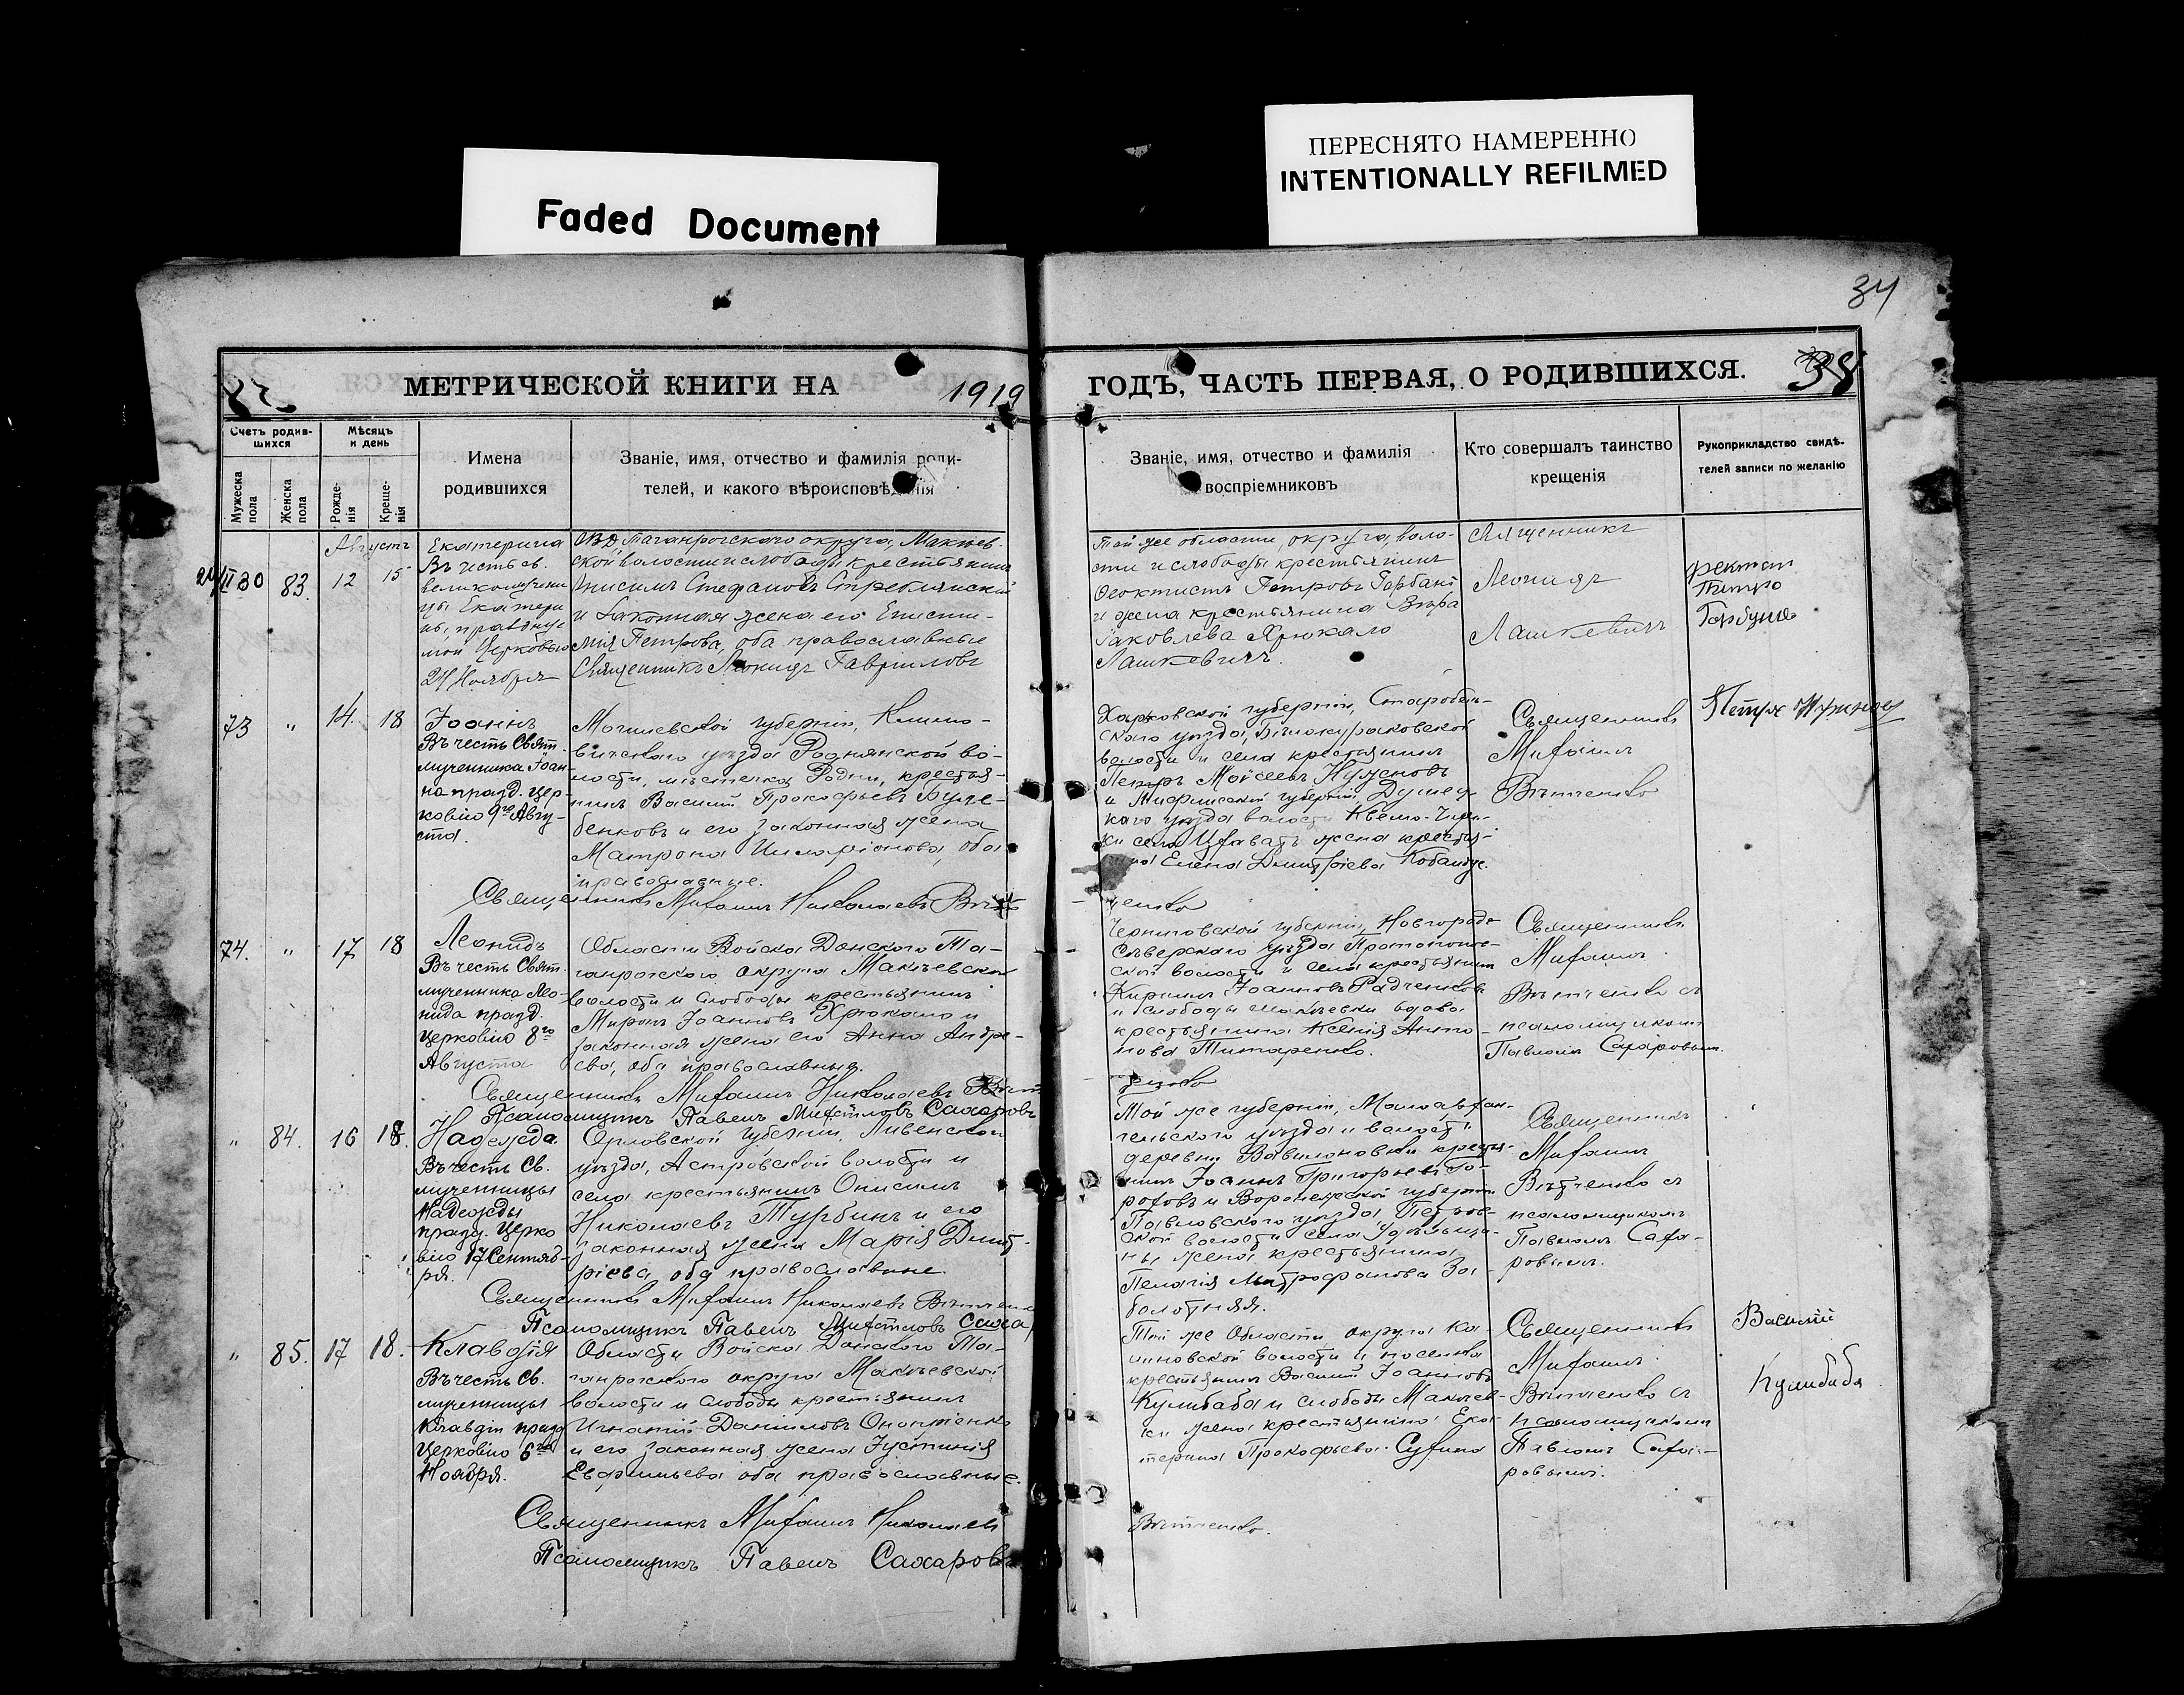 ПЕРЕСНЯТО НАМЕРЕННО
INTENTIONALLY REFILMED
Faded Document
34
МЕТРИЧЕСКОЙ КНИГИ НА 1919
ГОДЪ, ЧАСТЬ ПЕРВАЯ, О РОДИВШИХСЯ.
38
Счетъ родив-
шихся
Мѣсяцъ
и день
Мужеска
пола
Женска
пола
Рожде-
нія
Креще-
нія
Имена
родившихся
Званіе, имя, отчество и фамилія роди-
телей, и какого вѣроисповѣданія
Званіе, имя, отчество и фамилія
воспріемниковъ
Кто совершалъ таинство
крещенія
Рукоприкладство свидѣ-
телей записи по желанію
Августъ
83. 12 15
Екатерина
Въ честь св.
великомучени
цы Екатери
ны, празднуе
мой Церковью
24 Ноября
ОВД Таганрогскаго округа, Макѣев-
ской волости и слободы крестьянинъ
Онисимъ Стефановъ
и законная жена его Еписти-
мія Петрова, оба православные
Священникъ Леонидъ Гавриловъ
Той же области, округа, воло-
сти и слободы крестьянинъ
Ѳеоктистъ Петровъ Горбанъ
и жена крестьянина Вѣра
Іаковлева Хрюкало
Лашкевичъ.
Священникъ
Леонидъ
Лашкевичъ
73 " 14. 18
Іоаннъ
Въ честь Свят.
мученника Іоан-
на празд. цер-
ковію 9го Авгу-
ста.
Могилевской губерніи, Климо-
вичскаго уѣзда Роднянской во-
лости, мѣстечка Родни, крестья-
нинъ Василій Прокофьевъ
бенковъ и его законная жена
Матрона Иларіонова, оба
православные.
Священникъ Михаилъ Николаевъ
Харьковской губерніи, Старобѣль-
скаго уѣзда, Бѣлокураковской
волости и села крестьянинъ
Петръ Моисеевъ
и Тифлисской губерніи, Душет-
скаго уѣзда волости
жена крестья-
нина Елена Димитріева
Священникъ
Михаилъ
Вѣтченко
Петръ
74. " 17 18
Леонидъ
Въ честь Свят.
мученника Лео-
нида празд.
церковію 8го
Августа
Области Войска Донского Та-
ганрогскаго округа Макѣевской
волости и слободы крестьянинъ
Миронъ Іоанновъ Хрюкало и
законная жена его Анна Андре-
ева, оба православные.
Священникъ Михаилъ Николаевъ
Псаломщикъ Павелъ Сахаровъ
Черниговской губерніи, Новгородъ
Сѣверскаго уѣзда
ской волости и села крестьянинъ
Кириллъ Іоанновъ Радченковъ
и слободы Макѣевки вдова
крестьянина Ксенія Анто-
нова Титаренко.
Священникъ
Михаилъ
Вѣтченко съ
псаломщикомъ
Павломъ Сахаровымъ.
" 84. 16 18.
Надежда
Въ честь Св.
мученницы
Надежды
празд. Церко
вію 17 Сентяб-
ря.
Орловской губерніи, Ливенскаго
уѣзда, Астровской волости и
села крестьянинъ Онисимъ
Николаевъ Турбинъ и его
законная жена Марія Димит-
ріева, оба православные.
Священникъ Михаилъ Николаевъ Вѣтченко
Псаломщикъ Павелъ
Той же губерніи, Малоархан-
гельскаго уѣзда и волости
деревни Вавилоновки крестья-
нинъ Іоаннъ Григорьевъ
и Воронежской губерніи
Павловскаго уѣзда
ской волости села
жена крестьянина
Пелагія Митрофанова За-
болотняя.
Священникъ
Михаилъ
Вѣтченко съ
псаломщикомъ
Павломъ Саха-
ровымъ.
" 85. 17 18.
Клавдія
Въ честь Св.
мученницы
Клавдіи празд
Церковію 6го
Ноября.
Области Войска Донского Та-
ганрогскаго округа Макѣевской
волости и слободы крестьянинъ
Игнатій Даніиловъ Онопріенко
и его законная жена Іустинія
Евфимьева оба православные.
Священникъ Михаилъ Николаевъ
Псаломщикъ Павелъ Сахаровъ
Той же Области округа Ка-
линовской волости и поселка
крестьянинъ Василій Іоанновъ
Кулибаба и слободы Макѣев-
ки жена крестьянина Ека-
терина Прокофьева
Вѣтченко.
Священникъ
Михаилъ
Вѣтченко съ
псаломщикомъ
Павломъ Саха-
ровымъ.
Василій
Кулибаба